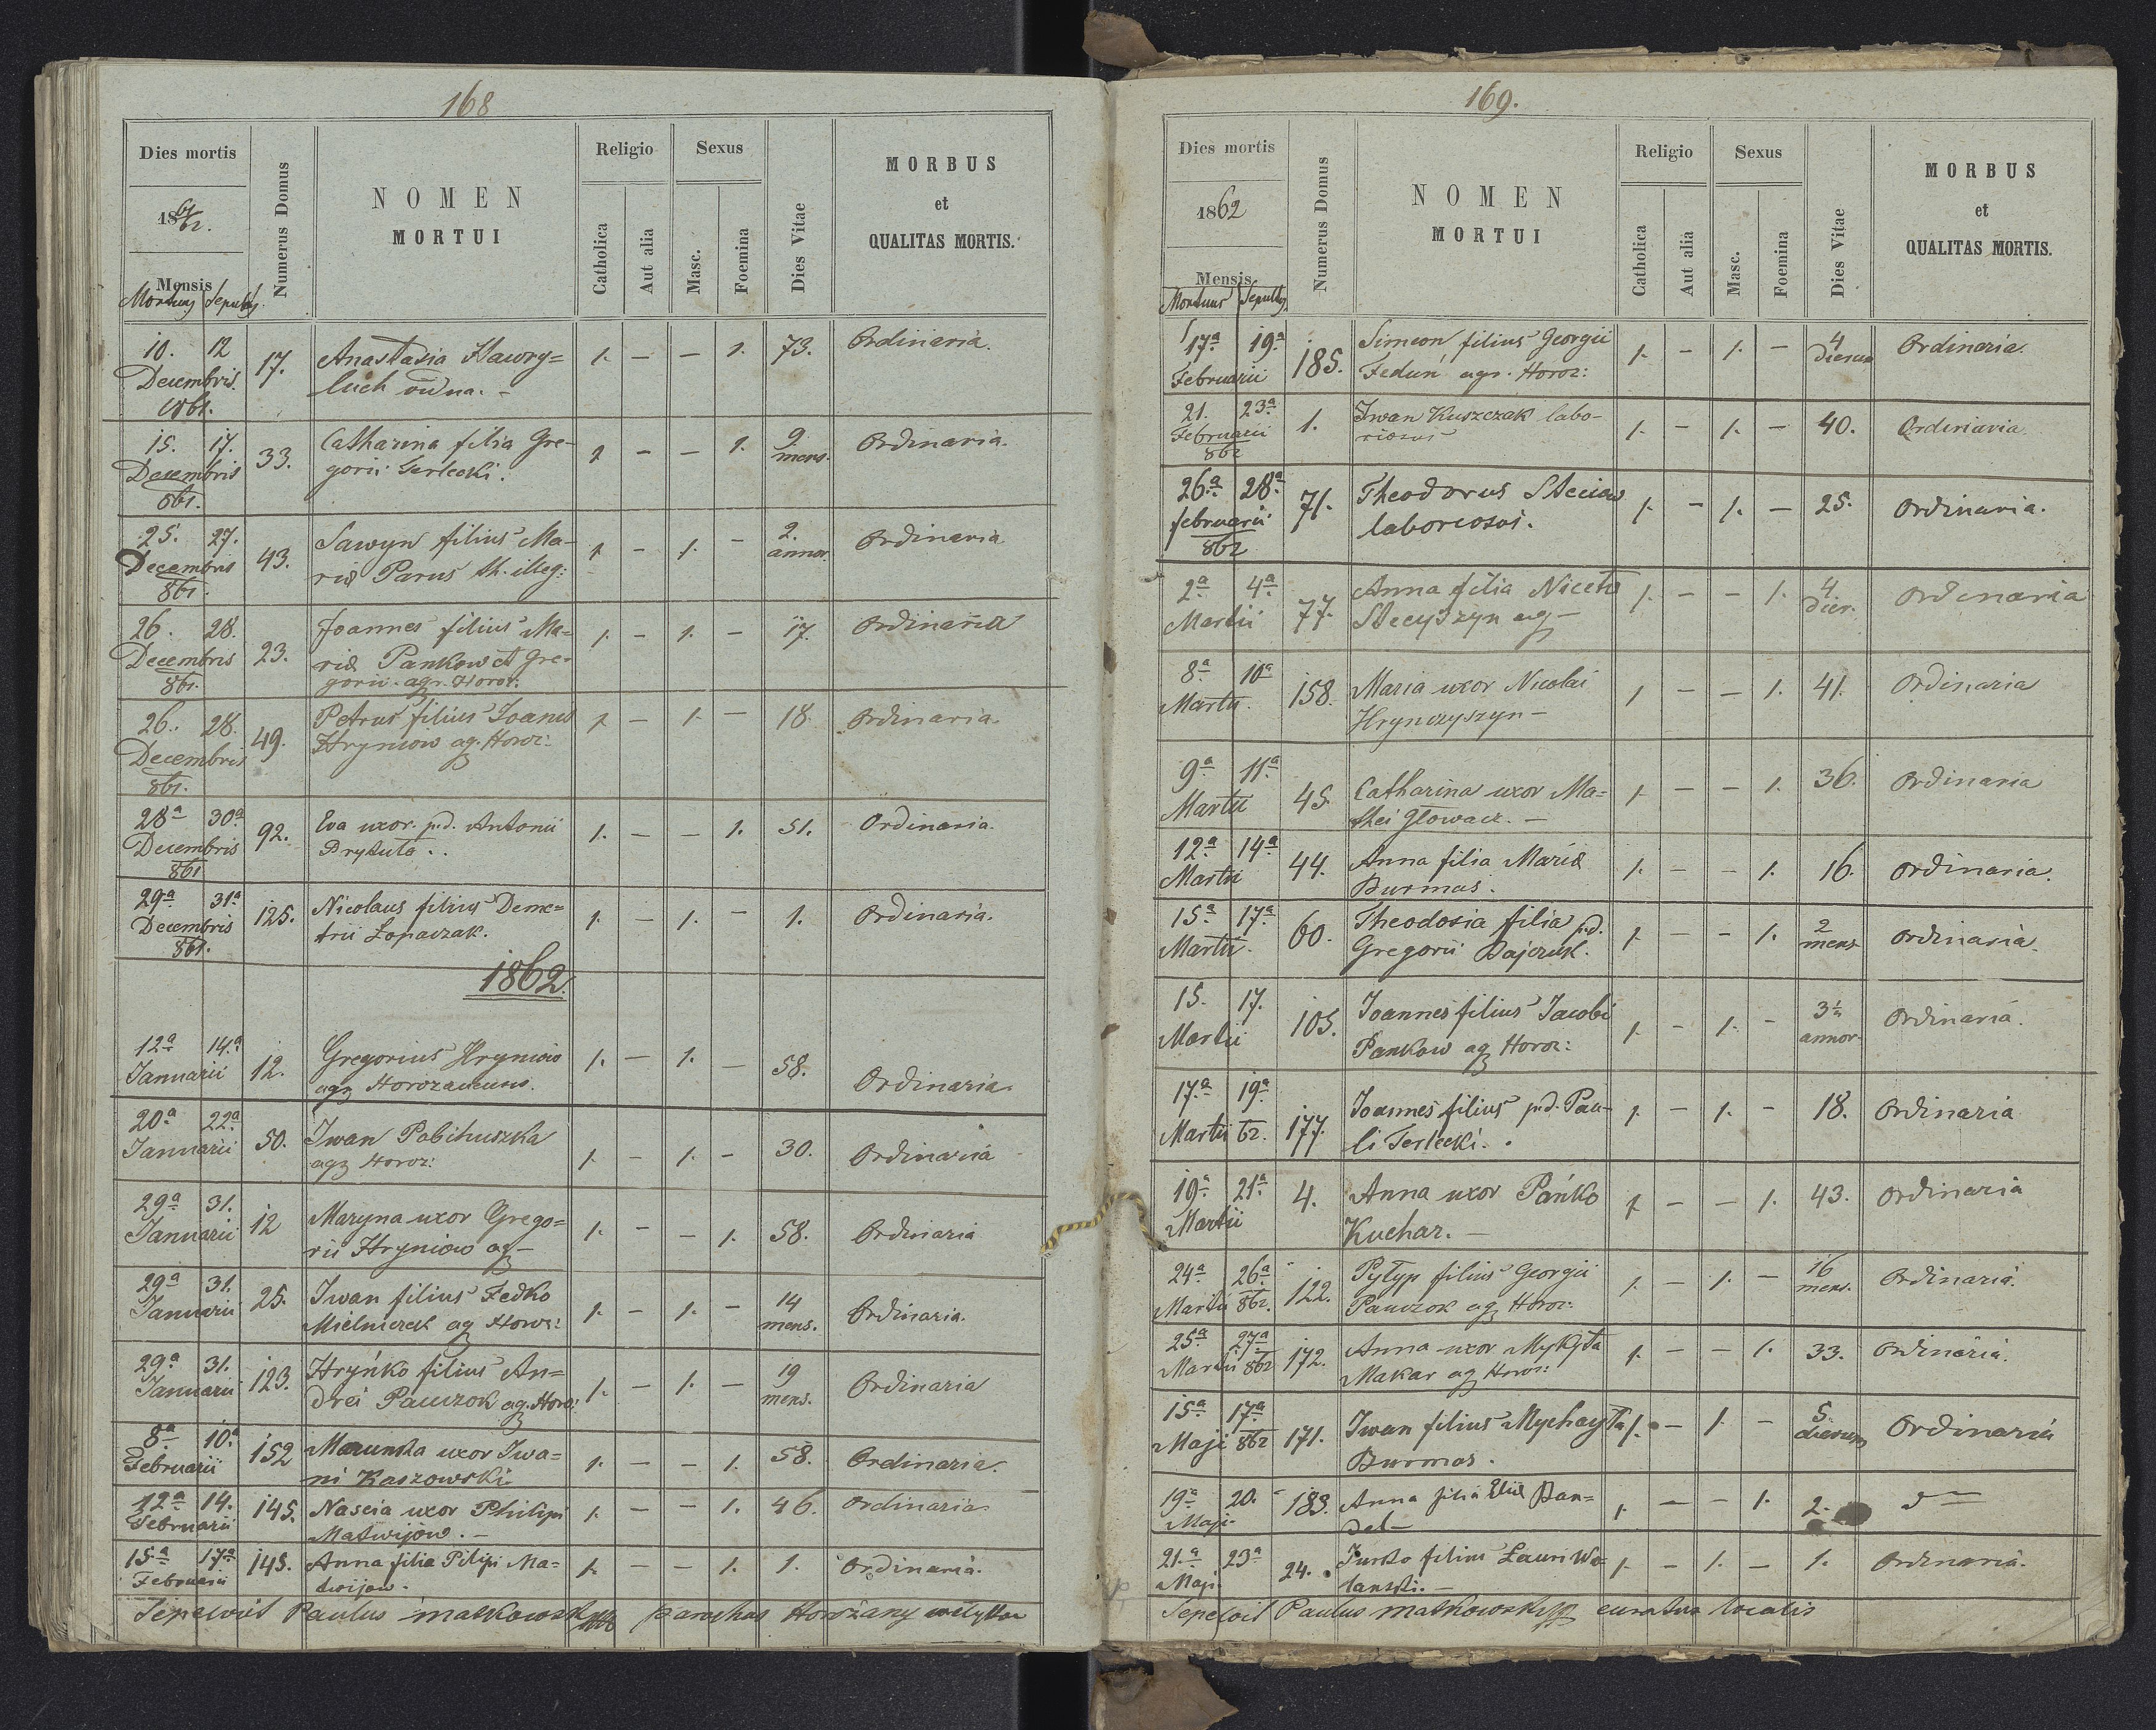 168
Dies mortis
1861/62.
Mensis
Mortuus Sepultus.
Numerus Domus
NOMEN
MORTUI
Religio
Catholica
Aut alia
Sexus
Masc.
Foemina
Dies Vitae
MORBUS
et
QUALITAS MORTIS.
10. 12 17. Anastasia Hawry= 1. — — 1. 73. Ordinaria.
Decembris luch vidua. -
1861.
15. 17. 33. Catharina filia Gre- 1 — — 1. 9 Ordinaria.
Decembris gorii Terlecki. mens.
861.
25. 27. 43. Sawyn filius Ma- 1 — 1. — 2. Ordinaria
Decembris riæ Parus th. illeg: annor
861.
26. 28. 23. Joannes filius Ma= 1. — 1. — 17. Ordinaria
Decembris riæ Pankow et Gre-
861. gorii agr. Horoz:
26. 28. 49. Petrus filius Joannis 1 — 1. — 18. Ordinaria
Decembris Hryniow ag. Horoz:
861.
28a 30a 92. Eva uxor p.d. Antonii 1. — — 1. 51. Ordinaria.
Decembris Prytuła..
861
29a 31a 125. Nicolaus filius Deme= 1. — 1. — 1. Ordinaria.
Decembris trii Łopaczak.
861.
1862.
12a 14a 12. Gregorius Hryniow 1. — 1. — 58. Ordinaria.
Januarii agr Horozanensis.
20a 22a 50. Iwan Pobihuszka 1. — 1. — 30. Ordinaria
Januarii agr Horoz:
29a 31. 12 Maryna uxor Grego= 1. — — 1. 58. Ordinaria
Januarii rii Hryniow ag-
29a 31. 25. Iwan filius Fedko 1. — 1. — 14 Ordinaria.
Januarii Mielniczek ag Horoz: mens.
29a 31. 123. Hryńko filius An= 1. — 1. — 19 Ordinaria
Januarii drei Pauczok ag. Horoz: mens.
8a 10a 152 Marunka uxor Iwa= 1. — — 1. 58. Ordinaria.
Februarii ni Kaszowski
12a 14. 145. Nascia uxor Philipi 1. — — 1. 46. Ordinaria.
Februarii Matwijow. -
15a 17a 145. Anna filia Pilipi Ma= 1. — — 1. 1. Ordinaria.
Februarii twijow.
Sepelivit Paulus Małkowski parochus Horożany wełykoi
169.
Dies mortis
1862
Mensis
Mortuus Sepultus
Numerus Domus
NOMEN
MORTUI
Religio
Catholica
Aut alia
Sexus
Masc.
Foemina
Dies Vitae
MORBUS
et
QUALITAS MORTIS.
17a 19a 185. Simeon filius Georgii 1. — 1. — 4 Ordinaria.
Februarii Feduń agr. Horoz: dierum
21. 23a 1. Iwan Kuszczak labo- 1. — 1. — 40. Ordinaria.
Februarii riosus
862
26.a 28a 71. Theodorus Steciow 1. — 1. — 25. Ordinaria.
februarii laboriosus.
862
2a 4a 77. Anna filia Nicetæ 1. — — 1. 4. Ordinaria
Martii Stecyszyn ag- dier.
8a 10a 158. Maria uxor Nicolai 1 — — 1. 41. Ordinaria
Martii. Hrynczyszyn -
9a 11a 45. Catharina uxor Ma= 1. — — 1. 36. Ordinaria
Martii thei Głowacz. -
12a 14a 44. Anna filia Mariæ 1. — — 1. 16. Ordinaria.
Martii Burmas.
15a 17a 60. Theodosia filia p.d. 1. — — 1. 2 Ordinaria.
Martii. Gregorii Bajczuk. mens
15. 17. 105. Joannes filius Jacobi 1. — 1. — 3½ Ordinaria.
Martii Pankow ag Horoz: annor
17.a 19a 177. Joannes filius p.d. Pau- 1. — 1. — 18. Ordinaria
Martii 62. li Terlecki.
19a 21a 4. Anna uxor Pańko 1 — — 1. 43. Ordinaria
Martii Kuchar. -
24a 26a 122. Pyłyp filius Georgii 1. — 1. — 16 Ordinaria.
Martii 862. Pauczok ag Horoz: mens.
25a 27a 172. Anna uxor Mykyta 1. — — 1. 33. Ordinaria.
Martii 862 Makar ag Horoz:
15a 17a 171. Iwan filius Mychayła 1. — 1. — 5 Ordinaria
Maji 862 Burmas. dierum
19a 20. 183. Anna filia Eliæ Ban= 1. — — 1. 2.
Maji. del-
21.a 23a 24. Iurko filius Lauri Wo= 1. — 1. — 1. Ordinaria.
Maji. lanski. -
Sepelivit Paulus Małkowski curatus localis